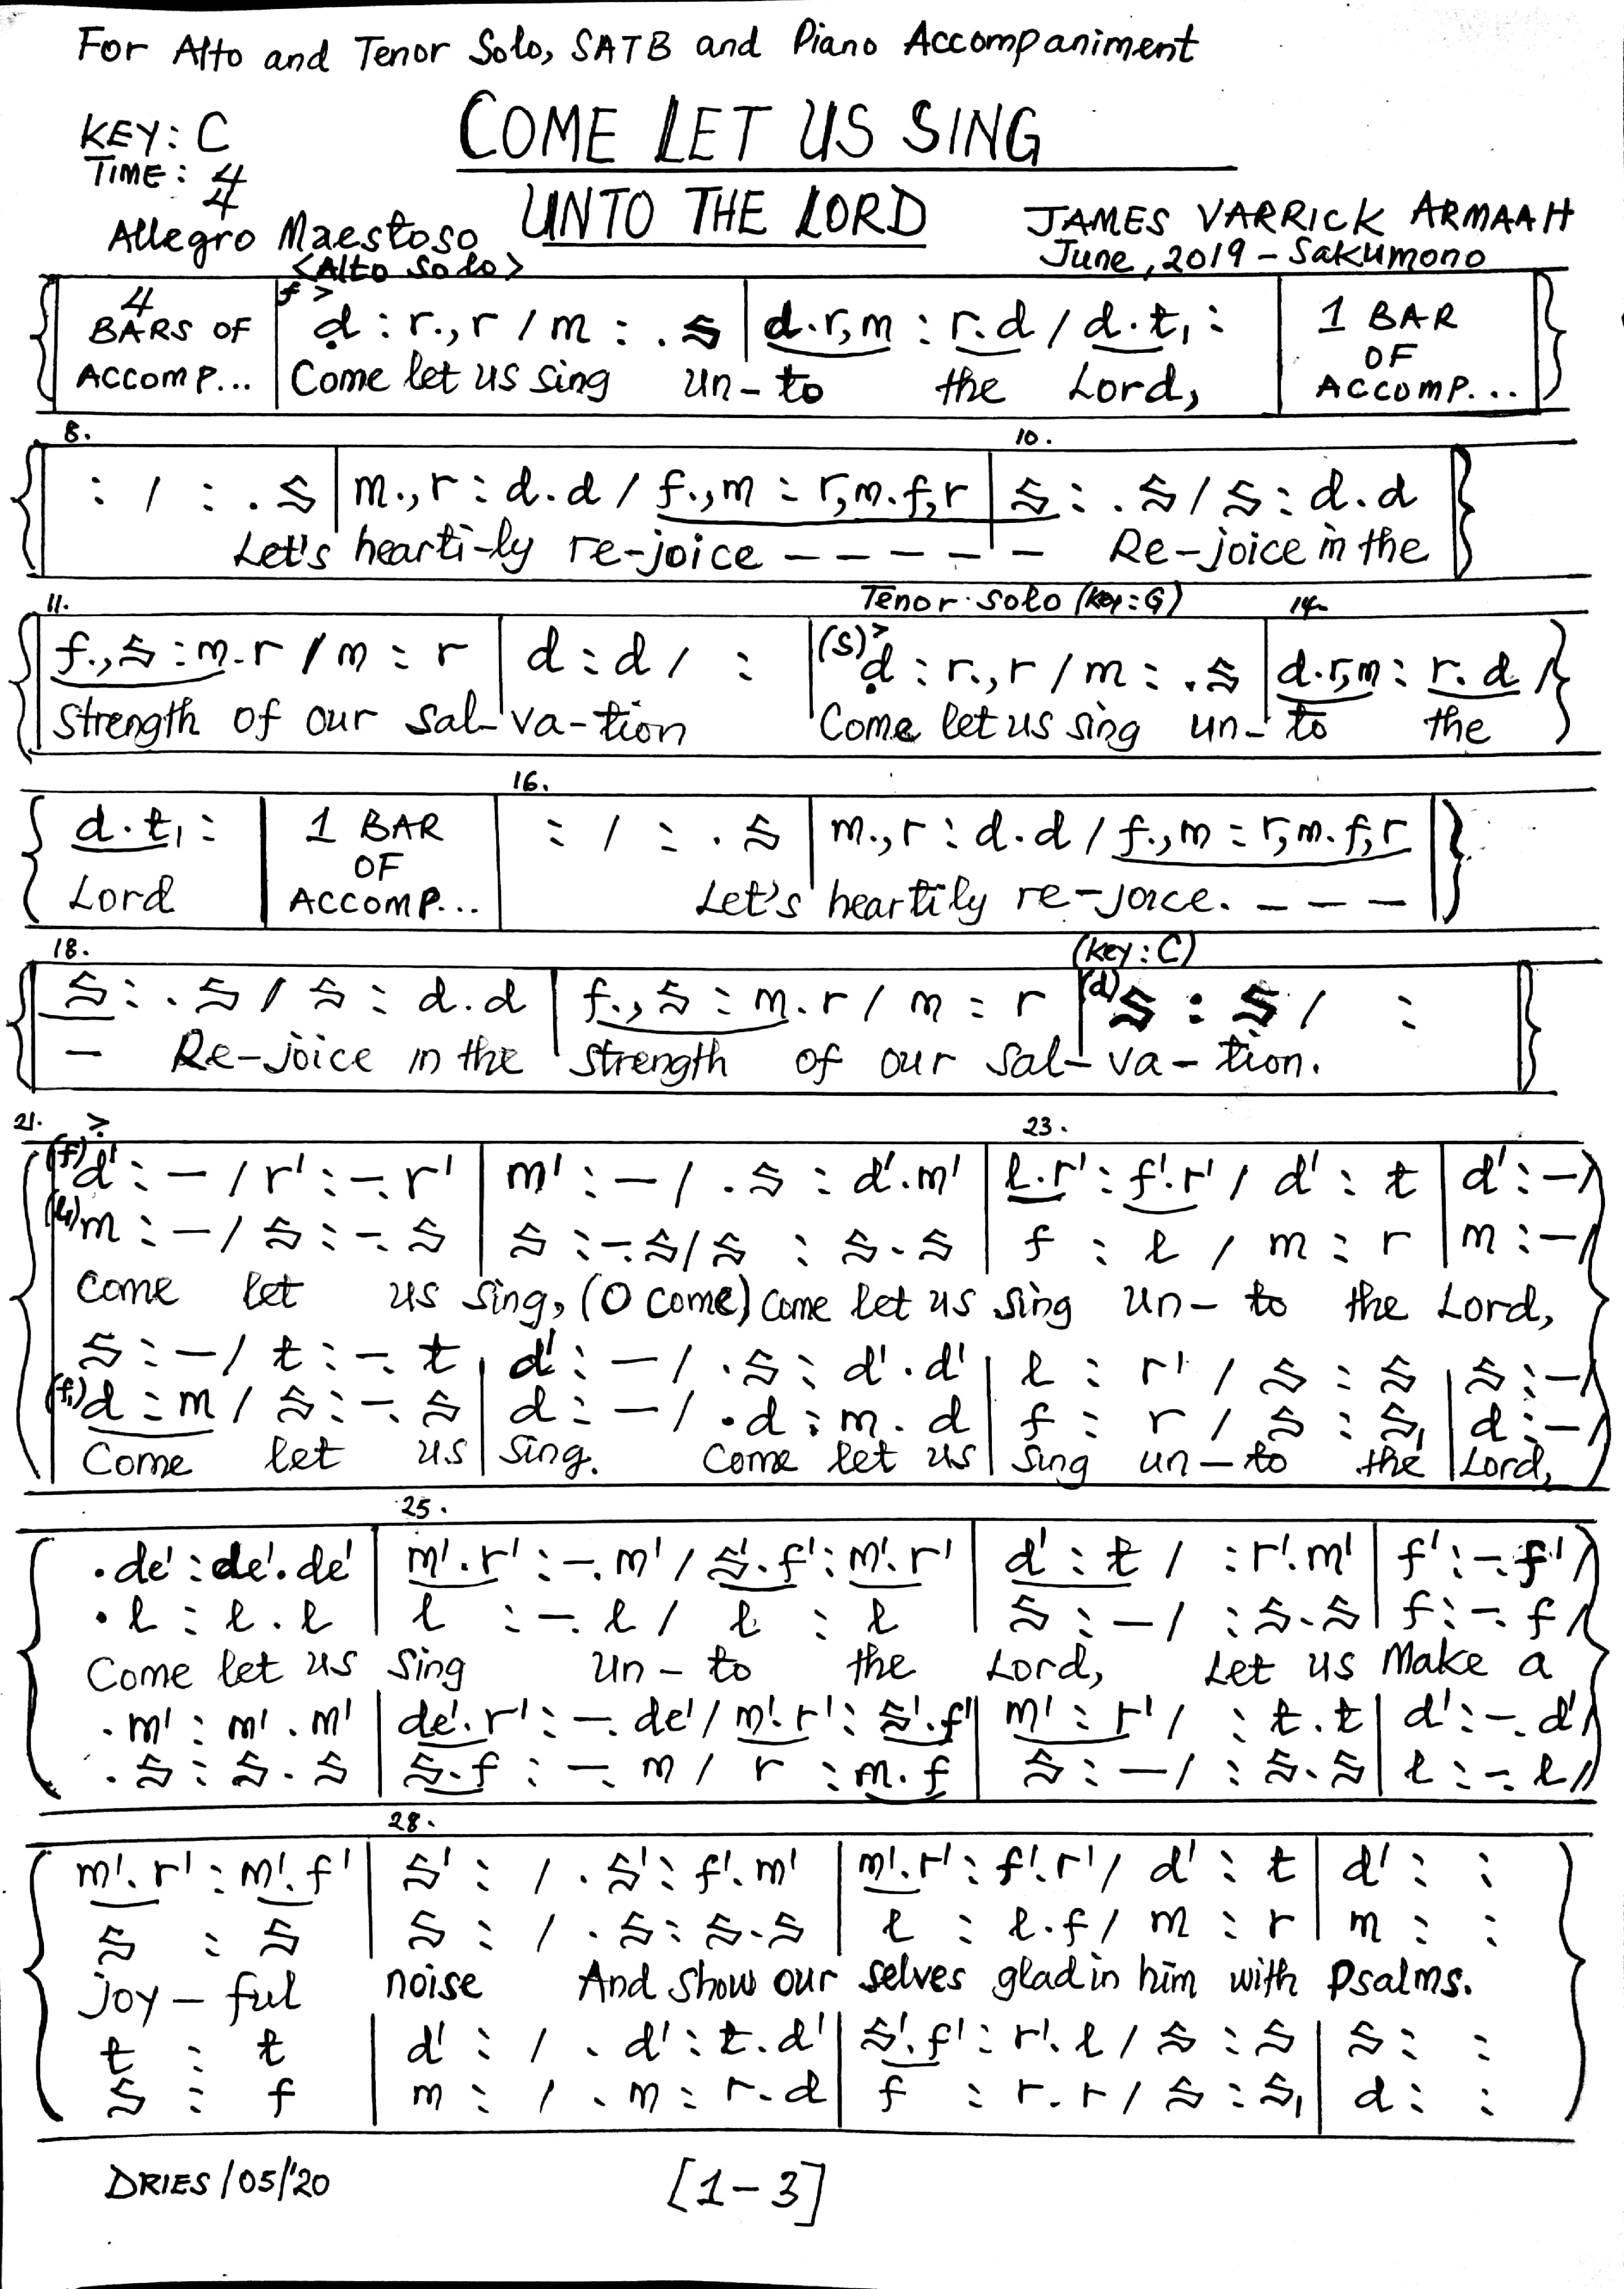 For Alto and Tenor Solo, SATB and Piano Accompaniment
KEY: C
COME LET US SING
TIME: 4/4
UNTO THE LORD
JAMES VARRICK ARMAAH
Allegro Maestoso
June, 2019 - Sakumono
<Alto Solo>
f >
4 BARS OF ACCOMP... | d : r.,r / m : . s | d.r,m : r.d / d.t, : | 1 BAR OF ACCOMP...
Come let us sing un-to the Lord,
8. 10.
: / : . s | m.,r : d.d / f.,m : r,m.f,r | s : . s / s : d.d
Let's hearti-ly re-joice - - - - - - Re-joice in the
11. Tenor Solo (Key: G) 14.
f.,s : m.r / m : r | d : d / : | (s) > d : r.,r / m : . s | d.r,m : r.d /
Strength of our sal-va-tion Come let us sing un-to the
16.
d.t, : | 1 BAR OF ACCOMP... | : / : . s | m.,r : d.d / f.,m : r,m.f,r
Lord Let's heartily re-joice. - - -
18. (Key: C)
s : . s / s : d.d | f.,s : m.r / m : r | (d) s : s / :
- Re-joice in the strength of our sal-va-tion.
21. > 23.
(f) d' : - / r' : -. r' | m' : - / . s : d'.m' | l.r' : f'.r' / d' : t | d' : - /
(l,) m : - / s : -. s | s : -.s / s : s.s | f : l / m : r | m : - /
Come let us sing, (O come) come let us sing un-to the Lord,
s : - / t : -. t | d' : - / . s : d'.d' | l : r' / s : s | s : - /
(f,) d : m / s : -. s | d : - / . d : m.d | f : r / s : s, | d : - /
Come let us sing. Come let us sing un-to the Lord,
25.
. de' : de'.de' | m'.r' : -. m' / s'.f' : m'.r' | d' : t / : r'.m' | f' : -. f' /
. l : l.l | l : -. l / l : l | s : - / : s.s | f : -. f /
Come let us sing un-to the Lord, Let us Make a
. m' : m'.m' | de'.r' : -. de' / m'.r' : s'.f' | m' : r' / : t.t | d' : -. d' /
. s : s.s | s.f : -. m / r : m.f | s : - / : s.s | l : -. l /
28.
m'.r' : m'.f' | s' : / . s' : f'.m' | m'.r' : f'.r' / d' : t | d' : :
s : s | s : / . s : s.s | l : l.f / m : r | m : :
joy-ful noise And show our selves glad in him with Psalms.
t : t | d' : / . d' : t.d' | s'.f' : r'.l / s : s | s : :
s : f | m : / . m : r.d | f : r.r / s : s, | d : :
DRIES/05/'20
[1-3]